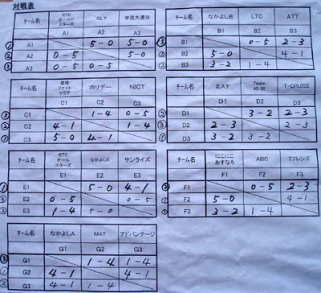 対戦表
チーム名 GLY 早苗大通会
A1 A2 A3
① A1 5-0 5-0
② A2 0-5 5-0
③ A3 0-5 0-5
チーム名 なかよし会 LTC ATT
B1 B2 B3
B1 0-5 2-3
① B2 5-0 4-1
② B3 3-2 1-4
チーム名 ホリデー NICT
C1 C2 C3
③ C1 1-4 0-5
② C2 4-1 1-4
① C3 5-0 4-1
チーム名 北天 Team T-CROSS
D1 D2 D3
① D1 3-2 2-3
③ D2 2-3 2-3
② D3 3-2 3-2
チーム名 なかよしC サンライズ
E1 E2 E3
① E1 5-0 4-1
③ E2 0-5 0-5
② E3 1-4 5-0
チーム名 にこにこあすなろ ABC Tフレンズ
F1 F2 F3
③ F1 0-5 2-3
① F2 5-0 4-1
② F3 3-2 1-4
チーム名 なかよしA MAT アドバンテージ
G1 G2 G3
③ G1 1-4 1-4
① G2 4-1 4-1
② G3 4-1 1-4